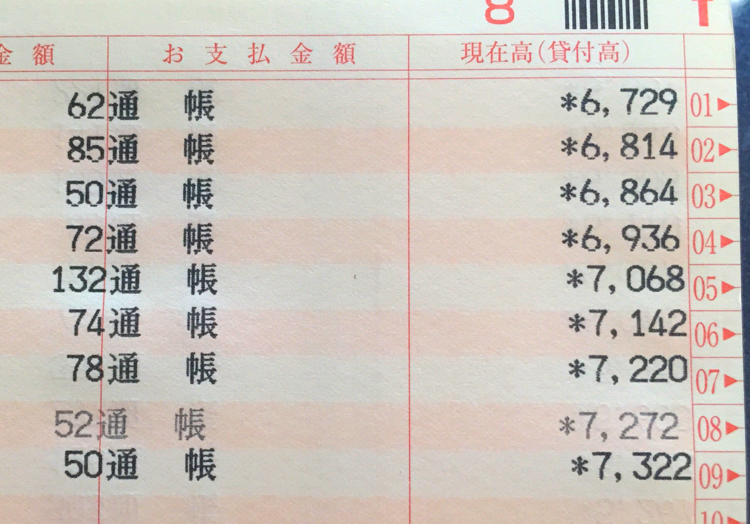 8 T
金額 お支払金額 現在高(貸付高)
62通 帳 *6,729 01▶
85通 帳 *6,814 02▶
50通 帳 *6,864 03▶
72通 帳 *6,936 04▶
132通 帳 *7,068 05▶
74通 帳 *7,142 06▶
78通 帳 *7,220 07▶
52通 帳 *7,272 08▶
50通 帳 *7,322 09▶
10▶